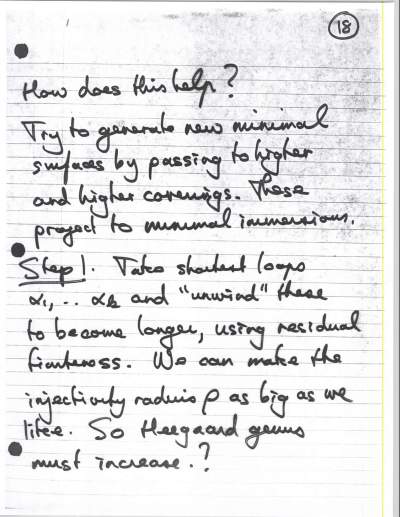 18
How does this help?
Try to generate new minimal
surfaces by passing to higher
and higher coverings. These
project to minimal immersions.
Step 1. Take shortest loops
α₁, .. αk and "unwind" these
to become longer, using residual
finiteness. We can make the
injectivity radius ρ as big as we
like. So Heegaard genus
must increase.?